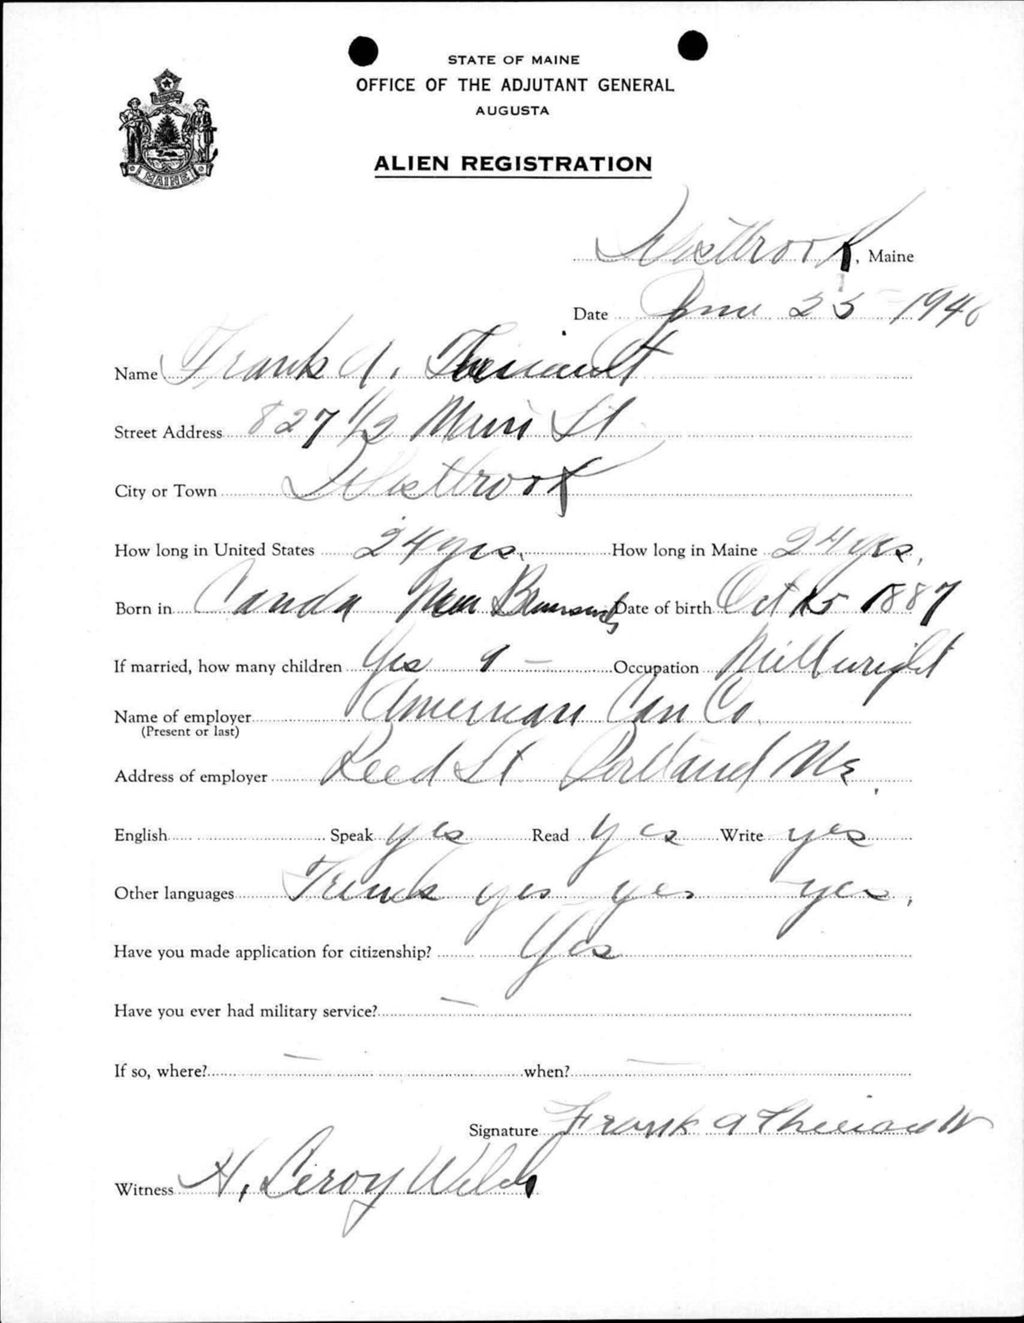 STATE OF MAINE
OFFICE OF THE ADJUTANT GENERAL
AUGUSTA
MAINE
ALIEN REGISTRATION
Westbrook, Maine
Date June 25 1940
Name Frank A. Theriault
Street Address 827 1/2 Main St
City or Town Westbrook
How long in United States 24 yrs. How long in Maine 24 yrs.
Born in Canda New Brunswick Date of birth Oct 15 1887
If married, how many children Yes 9 — Occupation Millwright
Name of employer American Can Co.
(Present or last)
Address of employer Reed St Portland Me.
English Speak yes Read yes Write yes
Other languages French yes yes yes.
Have you made application for citizenship? Yes
Have you ever had military service? —
If so, where? — when? —
Signature Frank A Theriault
Witness H. Leroy